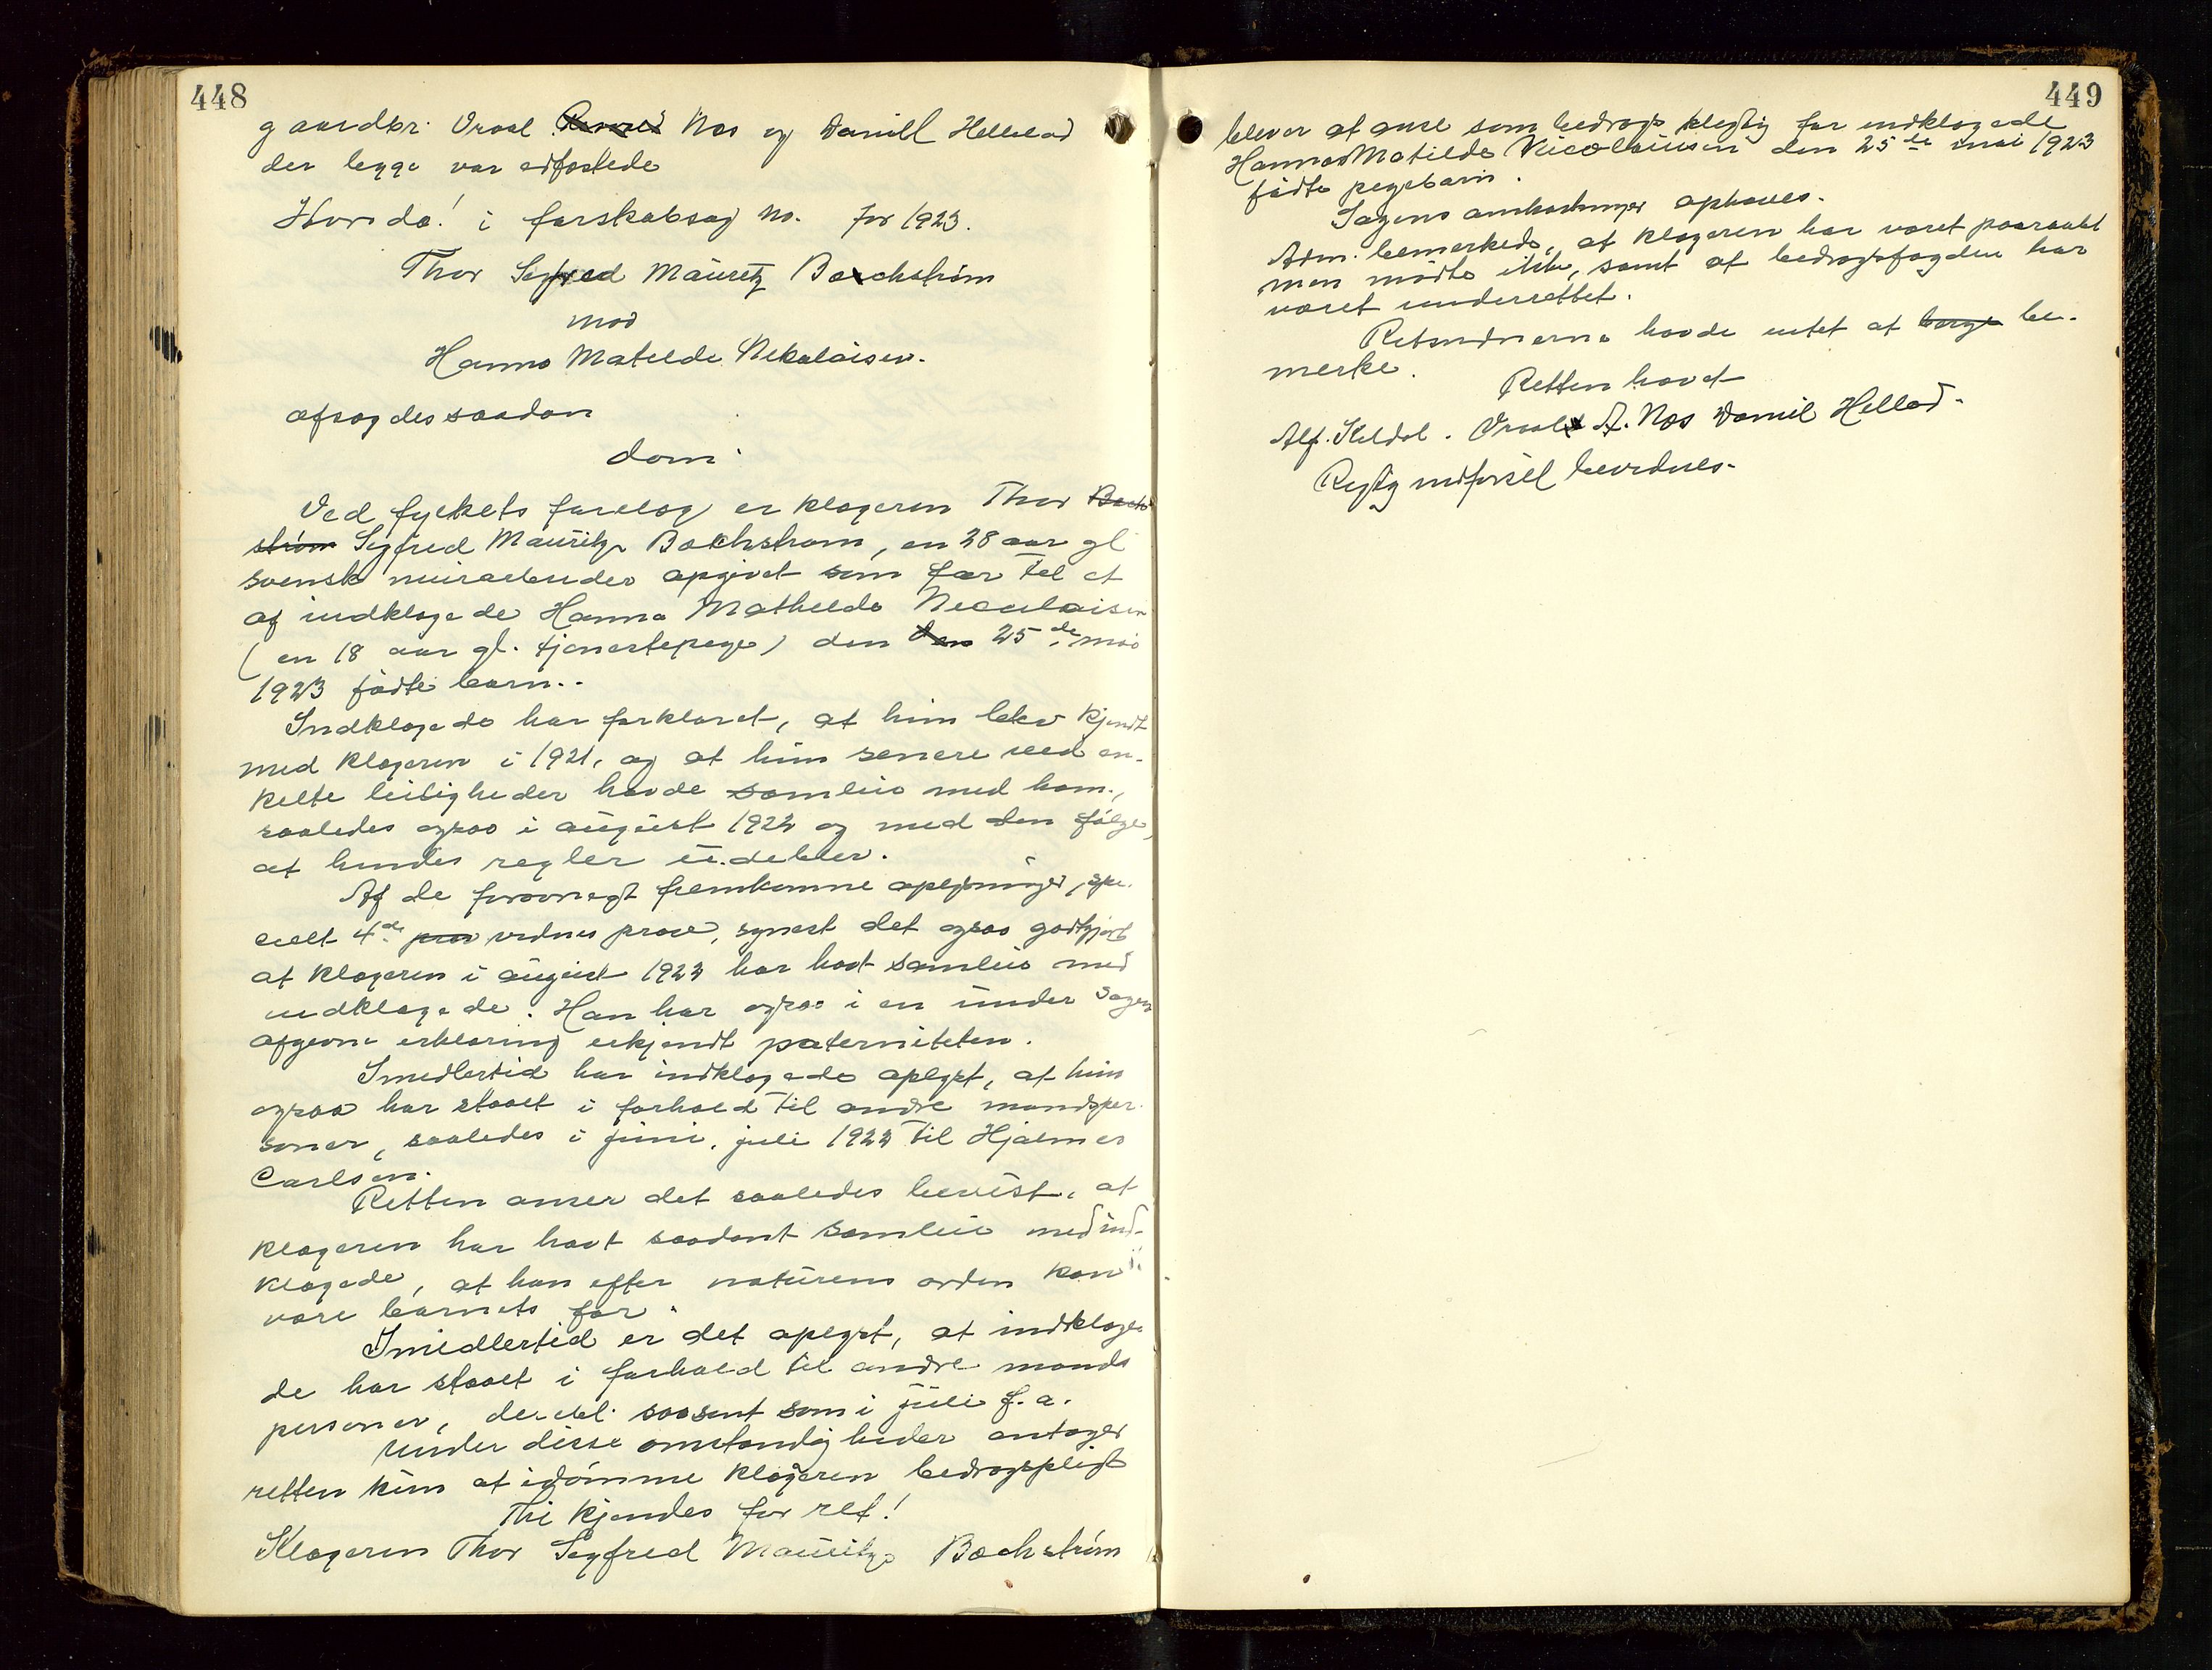 448
gaardbr. Oraal Nos og Daniel Hellelad
der begge var edfæstede
Hvorda! i farskabsag No. for 1923.
Thor Segfred Mauritz Bachstrøm
mod
Hanna Matilde Nikolaisen.
afsagdes saadan
dom:
Ved fylkets forelæg er klageren Thor Bach
strøm Sigfred Mauritz Bachstrøm, en 28 aar gl
svensk murarbeider opgivet som far til et
af indklagede Hanna Mathilde Nicolaisen
(en 18 aar gl. tjenestepige) den den 25de mai
1923 fødte barn.
Indklagede har forklaret, at hun blev kjendt
med klageren i 1921, og at hun senere ved en-
kelte leiligheder havde samleie med ham,
saaledes ogsaa i august 1922 og med den følge,
at hendes regler udeblev.
Af de forøvrigt fremkomne oplysninger, spe-
cielt 4de prov vidnes prove, synest det ogsaa godtgjort
at klageren i august 1922 har havt samleie med
indklagede. Han har ogsaa i en under sagen
afgiven erklæring erkjendt paterniteten.
Imidlertid har indklagede oplyst, at hun
ogsaa har staaet i forhold til andre mandsper-
soner, saaledes i juni, juli 1922 til Hjalmer
Carlsen.
Retten anser det saaledes bevist, at
klageren har havt saadant samleie med ind-
klagede, at han efter naturens orden kan
være barnets far.
Imidlertid er det oplyst, at indklage-
de har staaet i forhold til andre mands
personer, deribl. saasent som i juli f. a.
Under disse omstændigheder antager
retten kun at idømme klageren bidragspligt
Thi kjendes for ret!
Klageren Thor Segfred Mauritz Bachstrøm
449
bliver at anse som bidragspligtig for indklagede
Hanna Matilde Nicolaisen den 25de mai 1923
fødte pigebarn.
Sagens omkostninger ophæves.
Adm. bemerkede, at klageren har været paaraabt
men mødte ikke, samt at bidragsfogden har
været underrettet.
Retsvidnerne havde intet at berge be-
merke.
Retten hævet
Alf. Keldal. Oraal A. Nos Daniel Hellad.
Rigtig indførsel bevidnes.